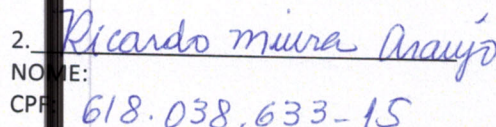 2. Ricardo Miura Araujo
NOME:
CPF: 618.038.633-15